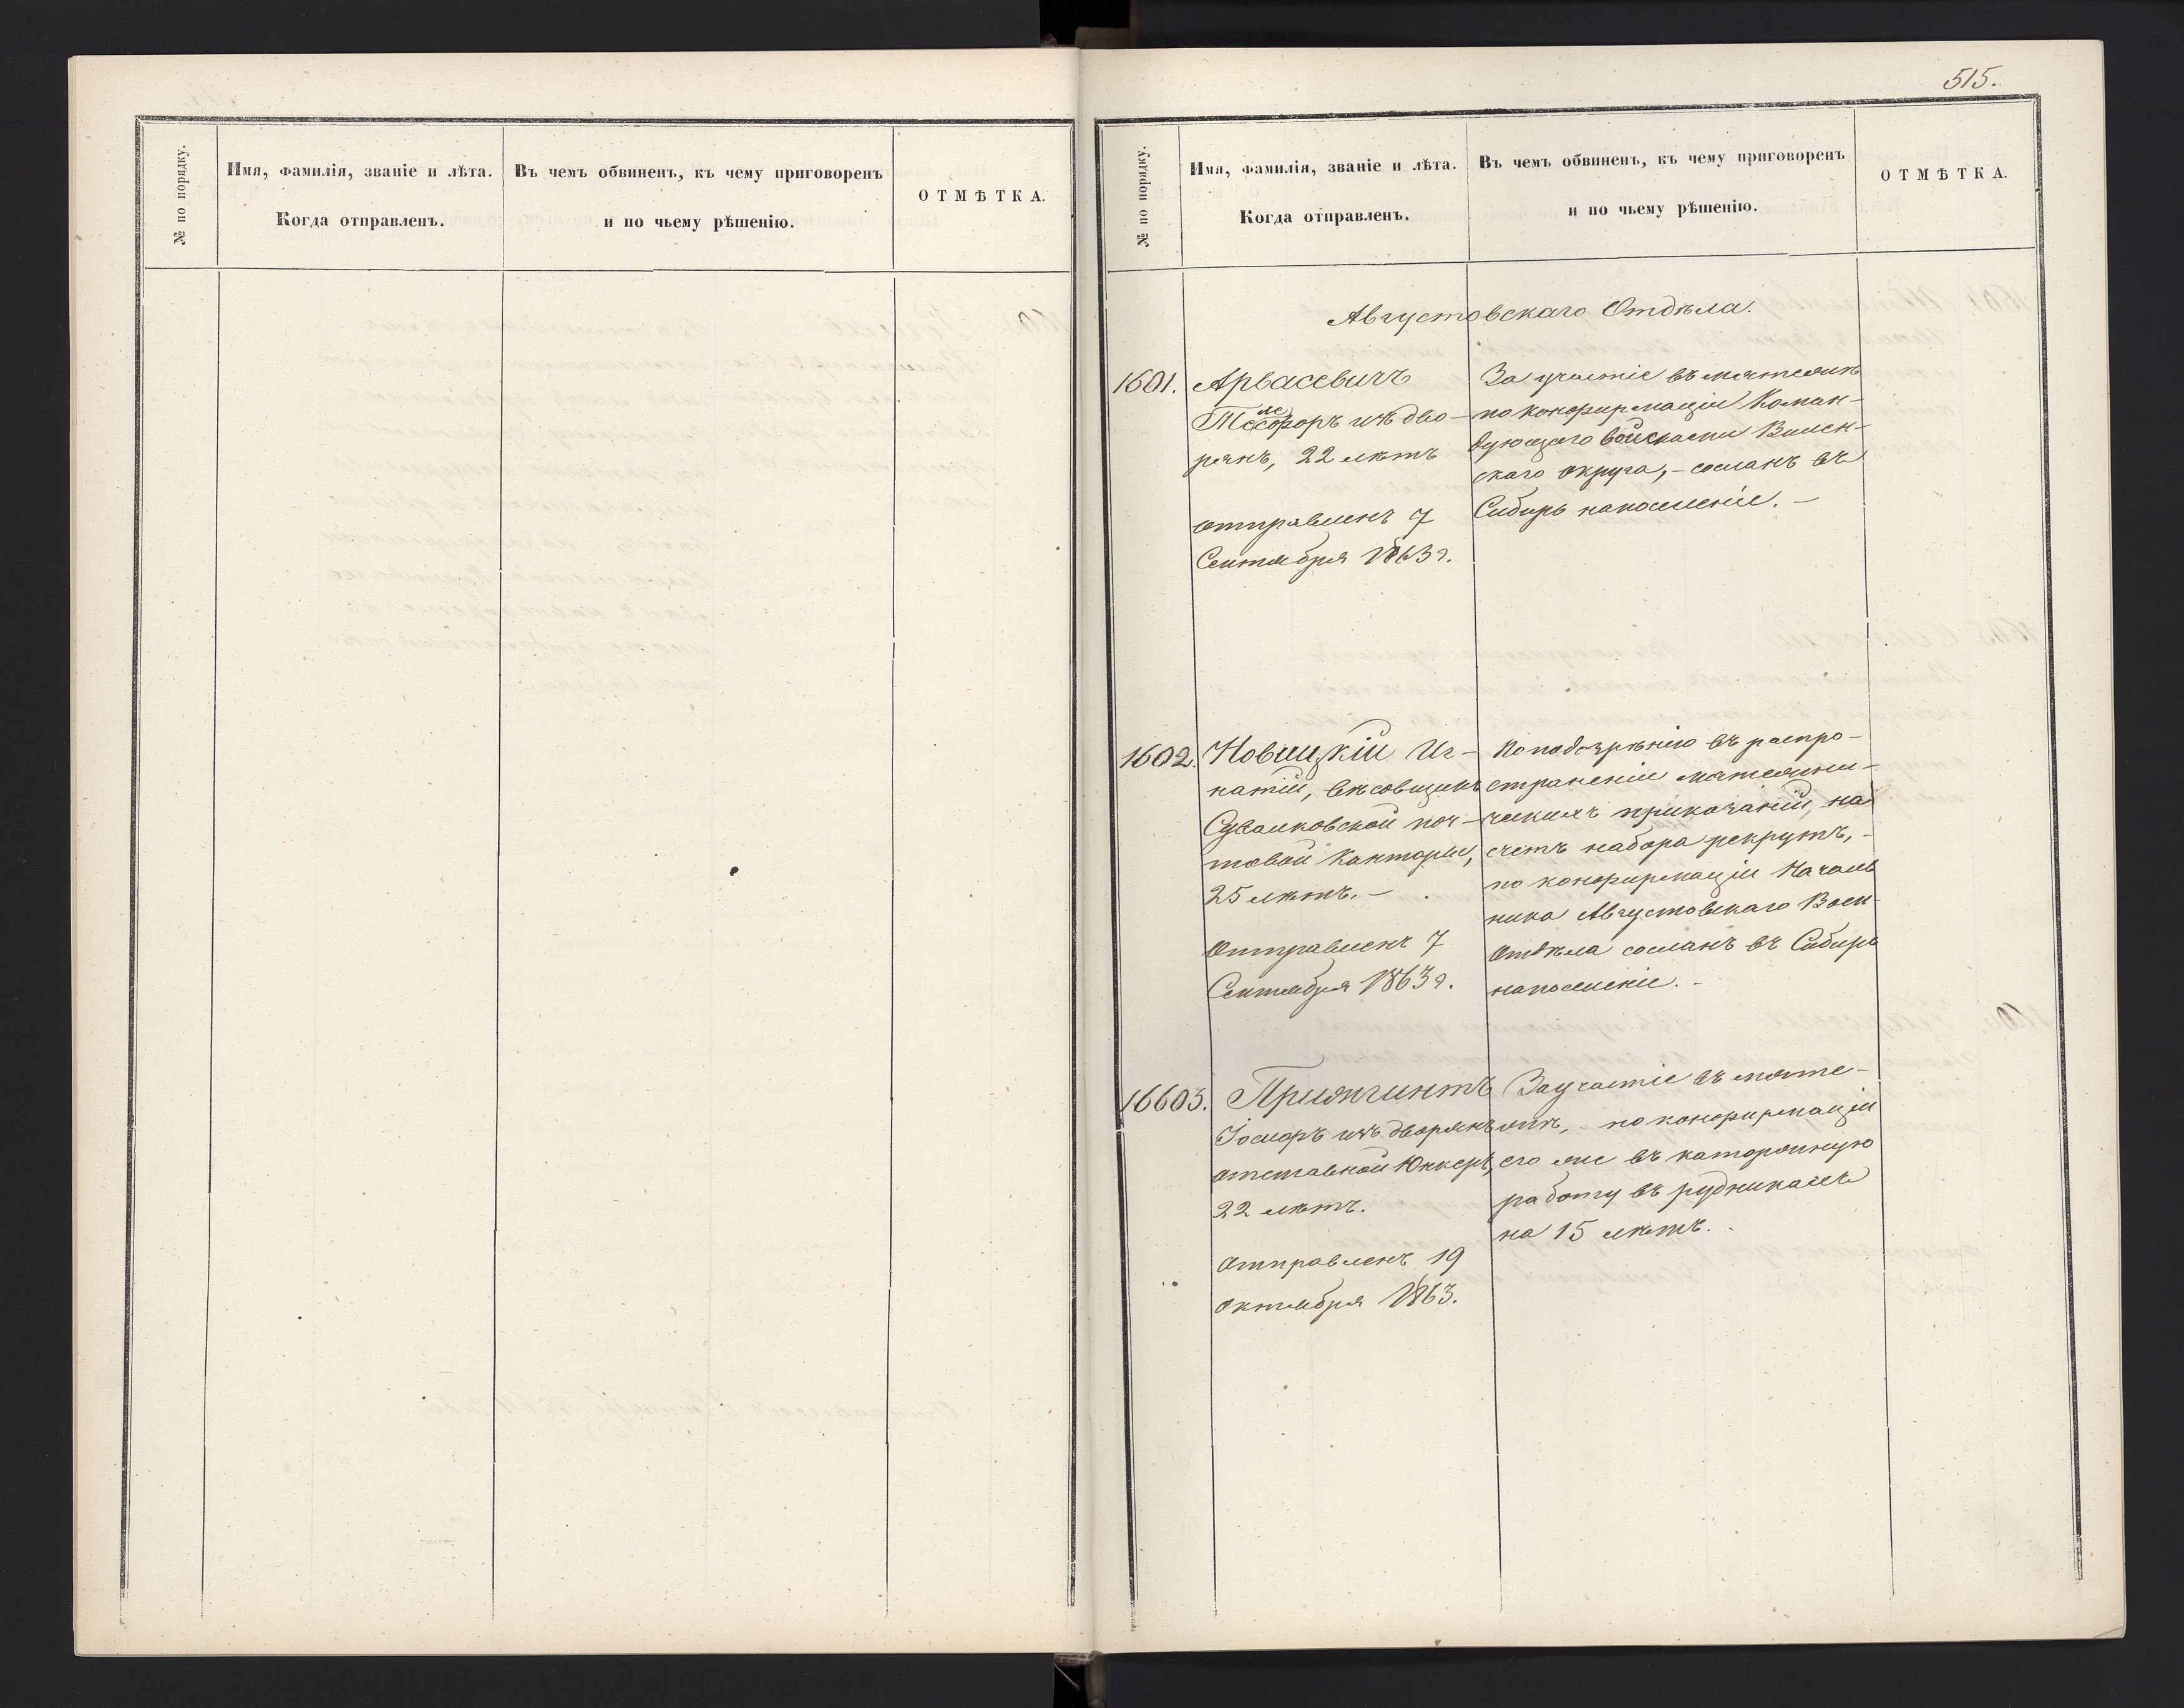 № по порядку.
Имя, фамилія, званіе и лѣта.
Когда отправленъ.
Въ чемъ обвиненъ, къ чему приговоренъ
и по чьему рѣшенію.
ОТМѢТКА.
515.
№ по порядку.
Имя, фамилія, званіе и лѣта.
Когда отправленъ.
Въ чемъ обвиненъ, къ чему приговоренъ
и по чьему рѣшенію.
ОТМѢТКА.
Августовскаго Отдѣла.
1601.
Арвасевичъ
изъ дво-
рянъ, 22 лѣтъ
отправленъ 7
Сентября 1863 г.
За участіе въ мятежѣ
по конфирмаціи Коман-
дующаго войсками Вилен-
скаго округа, – сосланъ въ
Сибирь на поселеніе. –
1602.
Новицкій Иг-
натій, вѣсовщикъ
Сувалковской поч-
товой Канторы,
25 лѣтъ. –
Отправленъ 7
Сентября 1863 г.
По подозрѣнію въ распро-
страненіи мятежни-
ческихъ приказаній, на
счетъ набора рекрутъ, -
по конфирмаціи Началь
ника Августовскаго Воен-
Отдѣла сосланъ въ Сибирь
на поселеніе. -
16603.
Приялгинтъ
Іосифъ изъ дворянъ
отставной Юнкеръ,
22 лѣтъ.
Отправленъ 19
Октября 1863.
За участіе въ мяте-
жѣ, - по конфирмаціи
его же въ каторжную
работу въ рудникахъ
на 15 лѣтъ. -